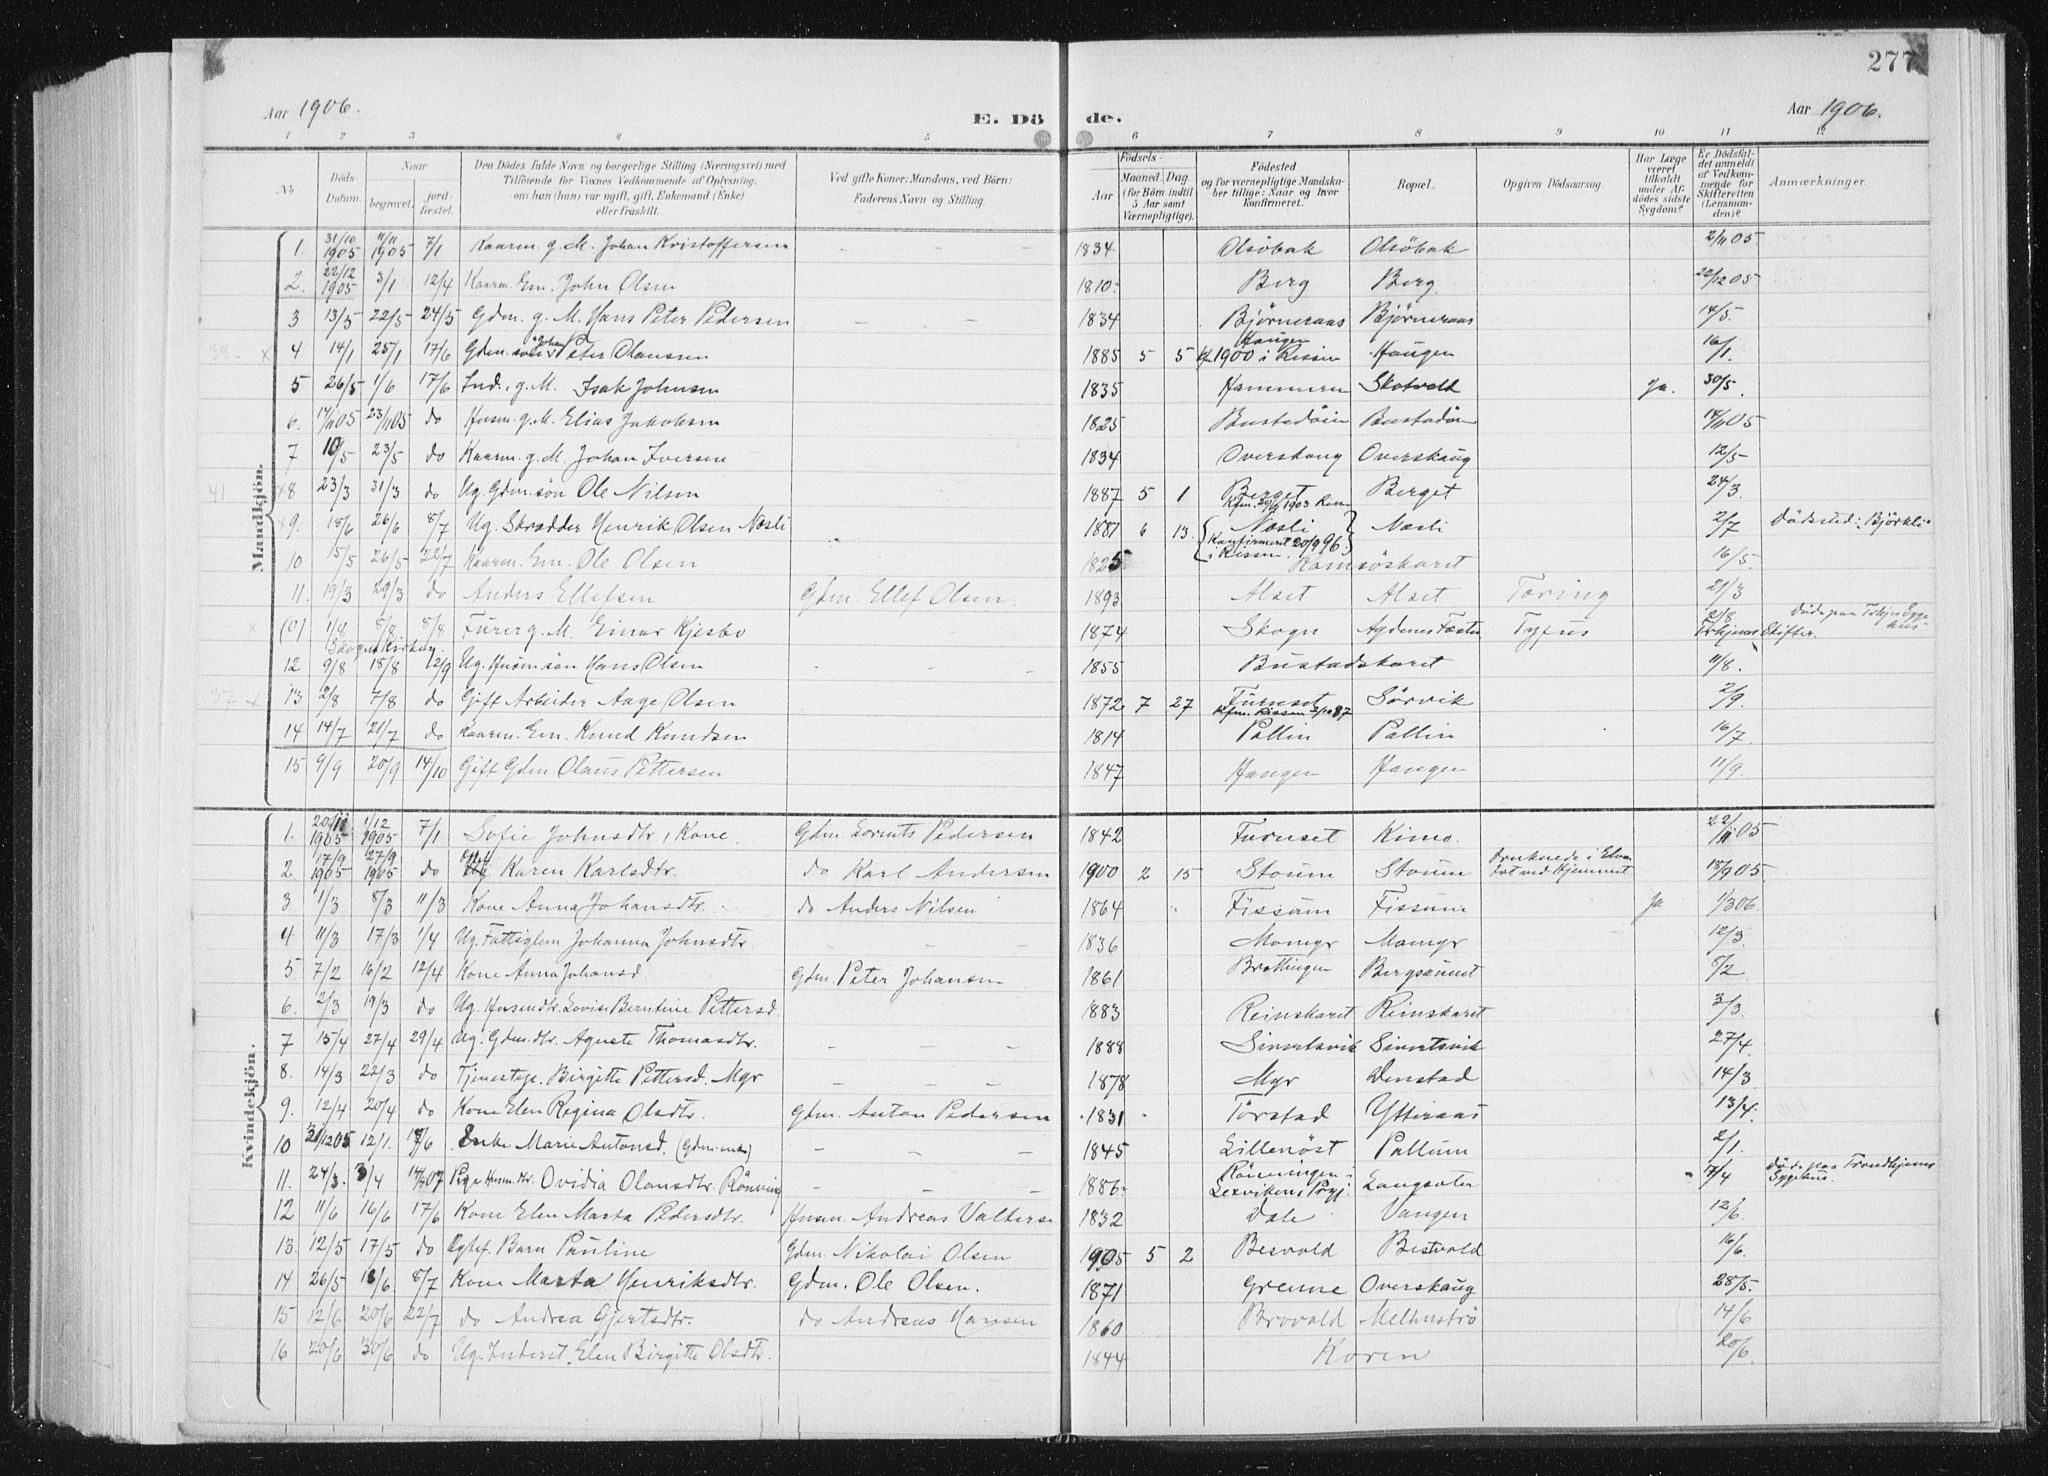 277
Aar 1906.
E. Döde.
Aar 1906.
1 2 3 4 5 6 7 8 9 10 11 12
No Döds-Datum. Naar begravet. jordfæstet. Den Dödes fulde Navn og borgerlige Stilling (Næringsvei) med Tilföiende for Voxnes Vedkommende af Oplysning, om han (hun) var ugift, gift, Enkemand (Enke) eller fraskilt. Ved gifte Koner: Mandens, ved Börn: Faderens Navn og Stilling. Födsels- Aar Maaned Dag (for Börn indtil 5 Aar samt Værnepligtige). Födested og for værnepligtige Mandskaber tillige: Naar og hvor konfirmeret. Bopæl. Opgiven Dödsaarsag. Har Læge været tilkaldt under Afdödes sidste Sygdom? Er Dödsfaldet anmeldt af Vedkommende for Skifteretten (Lensmanden)? Anmærkninger.
Mandkjön.
1. 31/10 1905 11/11 1905 7/1 Kaarm. g. M. Johan Kristoffersen – – 1834 Olsöbak Olsöbak 2/11 05.
2. 22/12 1905 3/1 12/4 Kaarm. Em. John Olsen 1810. Berg Berg. 22/12 05
3 13/5 22/5 24/5 Gdm. g. M. Hans Peter Pedersen – – 1834 Björneraas Björneraas 14/5.
38 – x 4 14/1 25/1 17/6 Gdm. sön Johan Peter Olaussen 1885 5 5 Haugen Kfm 1900 i Rissen Haugen 16/1.
5 26/5 1/6 17/6 Ind. g. M. Isak Johnsen 1835 Hammeren Skotvold Ja. 30/5.
6. 14/11 05 23/11 05 do Husm. g. M. Elias Jakobsen 1825 Bustadöien Bustadöien 14/11 05
7 10/5 23/5 do Kaarm. g. M. Johan Iversen 1834 Overskaug Overskaug 12/5
41 x 8 23/3 31/3 do Ug. Gdm. sön Ole Nilsen 1887 5 1 Berget Kfm. 1903 Rissen Berget 24/3.
x 9. 18/6 26/6 8/7 Ug. Skrædder Henrik Olsen Næsli 1881 6 13. Næsli Konfirmeret 20/9 96. i Rissen. Næsli 2/7 Dödssted: Björkli
10 15/5 26/5 22/7 Kaarm. Em. Ole Olsen 1825 Ramsöskaret 16/5.
11. 19/3 29/3 do Anders Ellefsen Gdm. Ellef Olsen. 1893 Alset Alset Tæring 21/3
x (0) 1/8 8/8 8/8 Furer g. M. Einar Kjesbo 1874 Skogn Agdenes Fæstn Tyfus 2/8 Trhjems Skifter. Döde paa Trhjes Sygehus
Skogns Kirkeg.
12 9/8 18/8 12/9 Ug. Husm. sön Hans Olsen 1855 Bustadskaret 11/8.
37 x 13 2/8 7/8 do Gift Arbeider Aage Olsen 1872 7 27 Furuset Kfm. Rissen 2/10 87 Sörvik 2/9.
14 14/7 21/7 do Kaarm. Em. Knud Knudsen 1814 Pallin Pallin 16/7
15 9/9 20/9 14/10 Gift Gdm. Olaus Pettersen 1847 Haugen Haugen 11/9.
Kvindekjön.
1. 20/11 1905 1/12 1905 7/1 Sofie Johnsdtr, Kone Gdm. Lorents Pedersen 1842 Furuset Kimo. 22/11 05
2. 17/9 1905 27/9 1905 do Karen Karlsdtr. do Karl Andersen 1900 2 15 Stoum Stoum druknede i Elven tæt ved Hjemmet 18/9 05.
3 1/3 8/3 11/3 Kone Anna Johansdtr. do Anders Nilsen 1864 Fissum Fissum Ja 1/3 06.
4 11/3 17/3 1/4 Ug. Fattiglem Johanna Johnsdtr. – – – 1836 Momyr Momyr 12/3.
5 7/2 16/2 12/4 Kone Anna Johansd. Gdm. Peter Johansen 1861 Brattingen Bergsaunet 8/2
6. 2/3 19/3 do Ug. Husmdtr. Lovise Berntine Pettersd. 1883 Reinskaret Reinskaret 3/3.
7 15/4 27/4 29/4 Ug. Gdm. dtr. Agnete Thomasdtr. – – – 1888 Sivertsvik Sivertsvik 27/4.
8. 14/3 22/3 do Tjenestepe. Birgitte Pettersd. Myr – – – 1878 Myr Denstad 14/3
9. 12/4 20/4 do Kone Elen Regina Olsdtr. Gdm. Anton Pedersen 1831 Törstad Ytteraas 13/4.
10 31/12 05 12/1. /6 Enke Marie Antonsd. (Gdm. enke) – – – 1845 Lillenöst Pallum 2/1.
11. 24/3. 3/4 07 Pige Husm. dtr. Ovidia Olausdtr. Rönning – – – 1886 Rönningen Lexvikens Prgj. Langsæter 17/4 Döde paa Trondhjems Sygehus.
12 11/6 16/6 17/6 Kone Elen Marta Pedersdtr. Husm. Andreas Valters 1832 Dale Vangen 12/6.
13. 12/5 17/5 do Ægtef. Barn Pauline Gdm. Nikolai Olsen 1905 5 2 Besvold Bestvold 16/6.
14 26/5 1/6. 8/7 Kone Marta Henriksdtr. Gdm. Ole Olsen. 1871 Grenne Overskaug 28/5.
15 12/6 20/6 22/7 do Andrea Gjertsdtr. do Andreas Hansen 1860 Brovold Melhuströ 14/6
16 20/6 30/6 do Ug. Inderst Elen Birgitte Olsdtr. 1844 Koren 20/6.